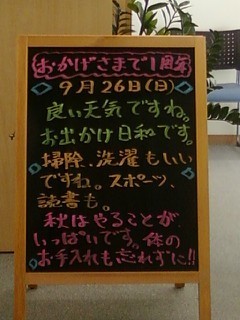 おかげさまで1周年
9月26日(日)
良い天気ですね。
お出かけ日和です。
掃除、洗濯もいい
ですね。スポーツ、
読書も。
秋はやることが
いっぱいです。体の
お手入れも忘れずに!!